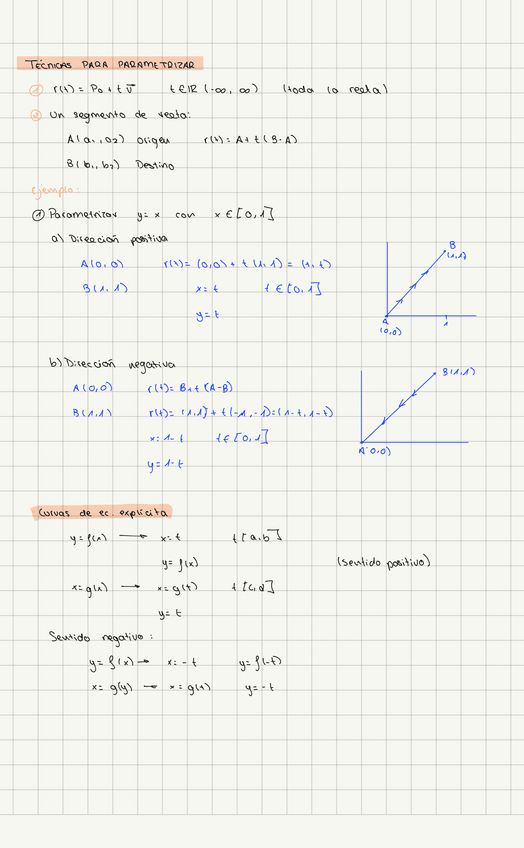 TÉCNICAS PARA PARAMETRIZAR
① r(t) = P₀ + t v̄ t ∈ ℝ (-∞, ∞) (toda la recta)
② Un segmento de recta:
A(a₁, a₂) origen r(t) = A + t (B-A)
B(b₁, b₂) Destino
Ejemplo:
① Parametrizar y = x con x ∈ [0,1]
a) Dirección positiva
A(0,0) r(t) = (0,0) + t (1,1) = (t,t)
B(1,1) x = t t ∈ [0,1]
y = t
B
(1,1)
A
(0,0)
1
b) Dirección negativa
A(0,0) r(t) = B + t (A-B)
B(1,1) r(t) = (1,1) + t (-1,-1) = (1-t, 1-t)
x: 1-t t ∈ [0,1]
y = 1-t
B(1,1)
A(0,0)
Curvas de ec. explícita
y = f(x) → x = t t [a,b]
y = f(x)
(sentido positivo)
x = g(x) → x = g(t) t [c,d]
y = t
Sentido negativo:
y = f(x) → x = -t y = f(-t)
x = g(y) → x = g(t) y = -t